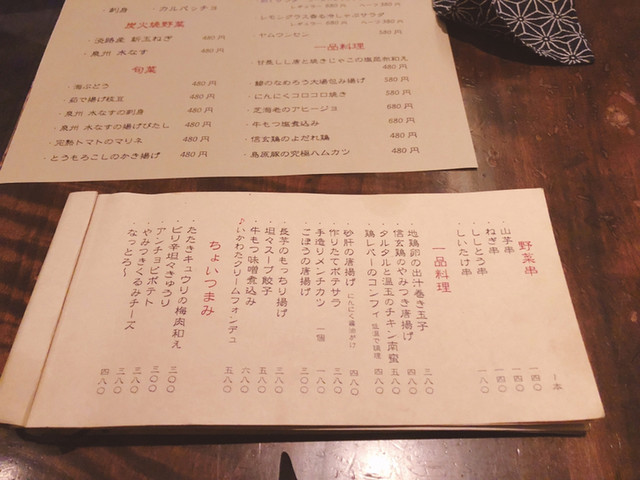 ・刺身　カルパッチョ
炭火焼野菜
・淡路産 新玉ねぎ 480円
・泉州 水なす 480円
旬菜
・海ぶどう 480円
・茹で揚げ枝豆 480円
・泉州 水なすの刺身 480円
・泉州 水なすの揚げびたし 480円
・完熟トマトのマリネ 480円
・とうもろこしのかき揚げ 480円
レモングラス香る冷しゃぶサラダ
レギュラー 880円 ハーフ 580円
・ヤムウンセン 580円
一品料理
・甘煮しし唐と焼きじゃこの塩昆布和え 480円
・鯵のなめろう大場包み揚げ 580円
・にんにくコロコロ焼き 580円
・芝海老のアヒージョ 680円
・牛もつ塩煮込み 680円
・信玄鶏のよだれ鶏 480円
・島原豚の究極ハムカツ 680円
野菜串 1本
・山芋串 一四〇
・ねぎ串 一四〇
・ししとう串 一四〇
・しいたけ串 一八〇
一品料理
・地鶏卵の出汁巻き玉子 三八〇
・信玄鶏のやみつき唐揚げ 四八〇
・タルタルと温玉のチキン南蛮 五八〇
・鶏レバーのコンフィ 低温で調理 四八〇
・砂肝の唐揚げ にんにく醤油がけ 四八〇
・作りたてポテサラ 三八〇
・手造りメンチカツ 一個 一八〇
・ごぼうの唐揚げ 三〇〇
・長芋のもっちり揚げ 三八〇
・坦々スープ餃子 五八〇
・牛もつ味噌煮込み 六八〇
♪いかわたクリームフォンデュ 五八〇
ちょいつまみ
・たたきキュウリの梅肉和え 三〇〇
・ピリ辛坦々きゅうり 三〇〇
・アンチョビポテト 三八〇
・やみつきくるみチーズ 三八〇
・なっとろ〜 四八〇